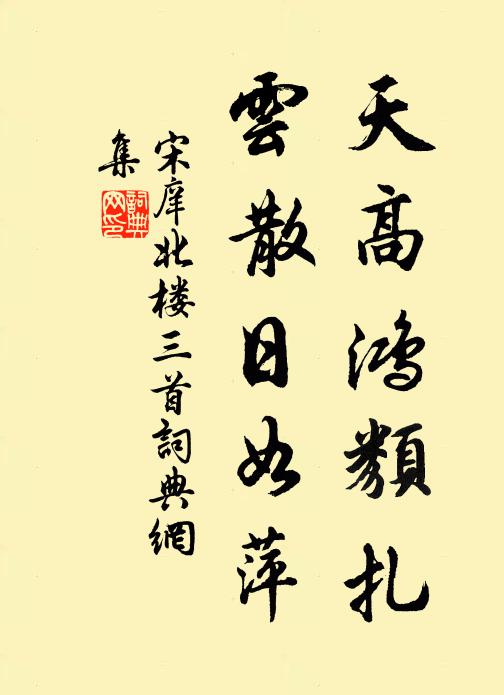 天高鸿類扎
雲散日如萍
宋庠北楼三首詞典網
集
詞典
网印